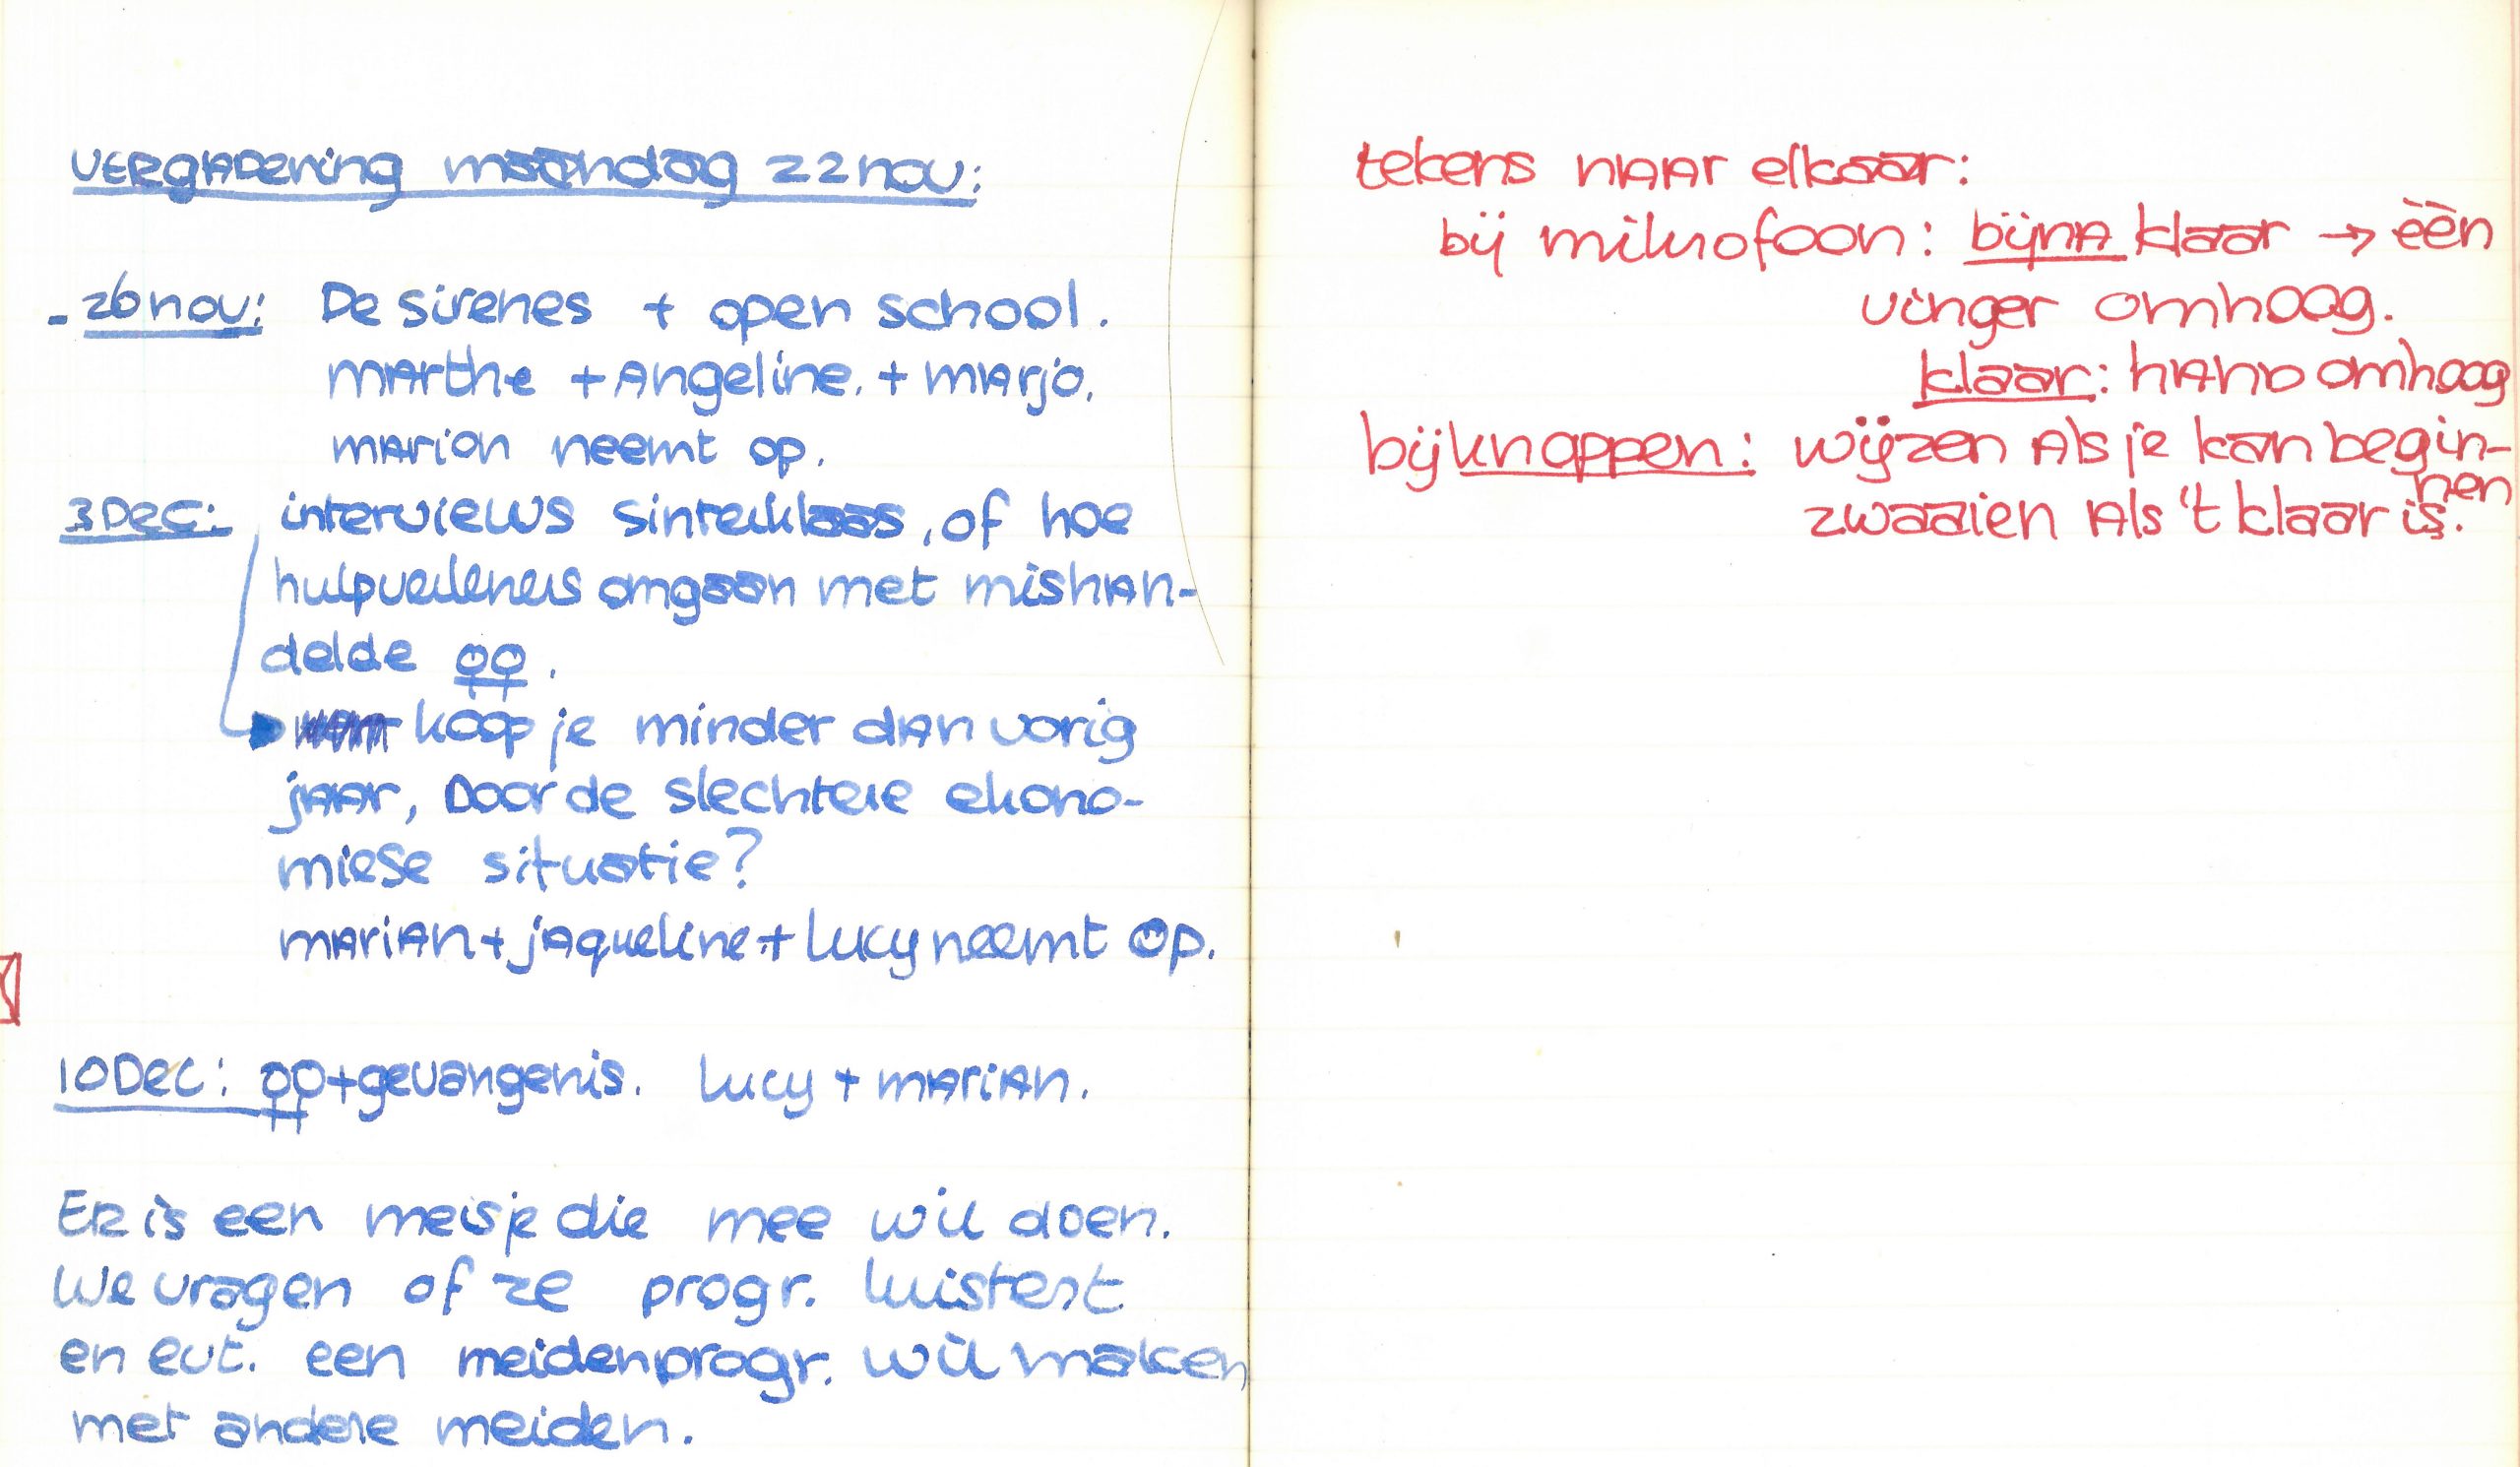 VERGADERING maandag 22 nov:
- 26 nov: De sirenes + open school.
marthe + Angeline. + marjo.
marion neemt op.
3 Dec: interviews sinterklaas, of hoe
hulpverleners omgaan met mishan-
delde ♀♀.
koop je minder dan vorig
jaar, Door de slechtere ekono-
miese situatie?
marian + jaqueline + Lucy neemt op.
10 Dec: ♀♀ + gevangenis. Lucy + marian.
Er is een meisje die mee wil doen.
We vragen of ze progr. luistert
en evt. een meidenprogr. wil maken
met andere meiden.
tekens naar elkaar:
bij mikrofoon: bijna klaar → èèn
vinger omhoog.
klaar: hand omhoog
bij knoppen: wijzen Als je kan begin-
nen
zwaaien Als 't klaar is.